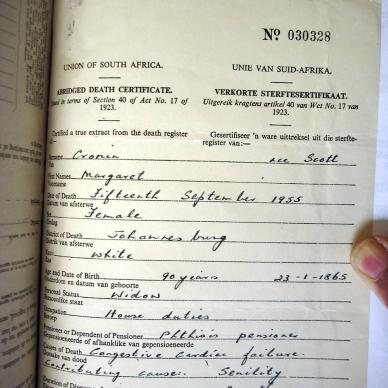 No 030328
UNION OF SOUTH AFRICA. UNIE VAN SUID-AFRIKA.
ABRIDGED DEATH CERTIFICATE. VERKORTE STERFTESERTIFIKAAT.
Issued in terms of Section 40 of Act No. 17 of 1923. Uitgereik kragtens artikel 40 van Wet No. 17 van 1923.
Certified a true extract from the death register of:— Gesertifiseer 'n ware uittreksel uit die sterfte-register van:—
Surname Cronin nee Scott
Van
First Names Margaret
Voorname
Date of Death Fifteenth September 1955
Datum van afsterwe
Sex Female
District of Death Johannesburg
Distrik van afsterwe
Race White
Ras
Age and Date of Birth 90 years 23-1-1865
Ouderdom en datum van geboorte
Personal Status Widow
Persoonlike staat
Occupation House duties
Beroep
Pensioner or Dependent of Pensioner Phthisis pensioner
Gepensioeneerde of afhanklike van gepensioeneerde
Causes of Death Congestive cardiac failure.
Oorsake van dood
Contributing cause: Senility
Duration of Disease